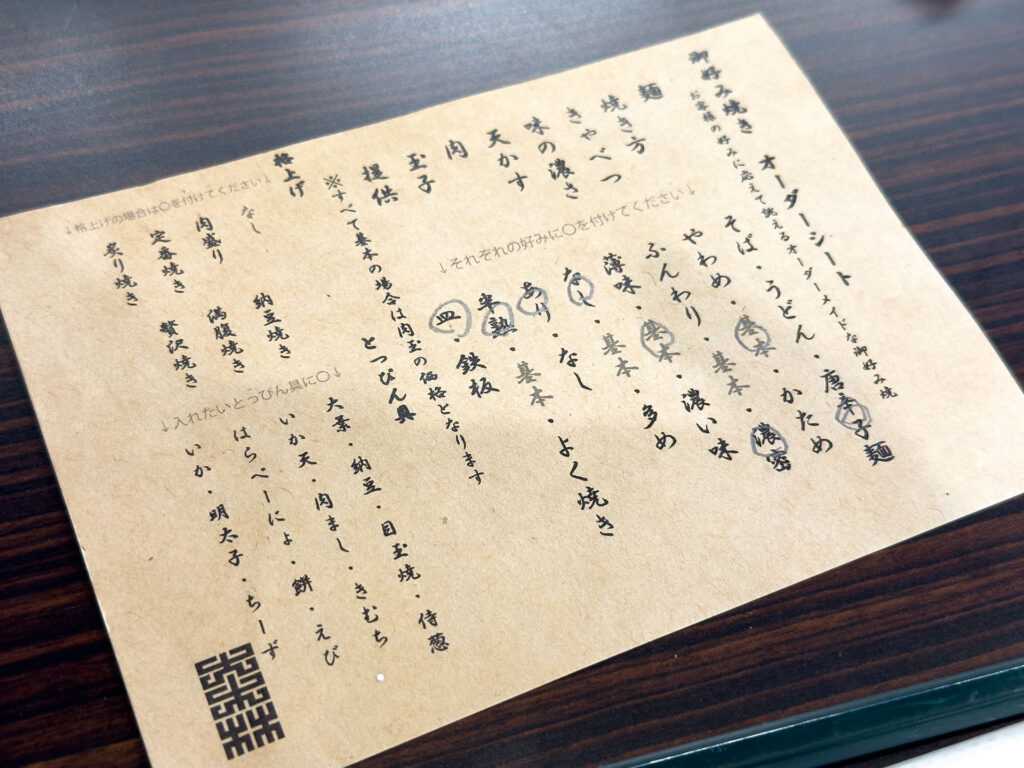 御好み焼き オーダーシート
お客様の好みに応えて誂えるオーダーメイドな御好み焼
↓それぞれの好みに〇を付けてください↓
麺 そば・うどん・唐辛子麺
焼き方 やわめ・基本・かため
きゃべつ ふんわり・基本・濃密
味の濃さ 薄味・基本・濃い味
天かす なし・基本・多め
肉 あり・なし
玉子 半熟・基本・よく焼き
提供 皿・鉄板
※すべて基本の場合は肉玉の価格となります
↓格上げの場合は〇を付けてください↓
格上げ
なし
肉盛り 納豆焼き
定番焼き 満腹焼き
炙り焼き 贅沢焼き
↓入れたいとっぴん具に〇↓
とっぴん具
大葉・納豆・目玉焼・侍葱
いか天・肉まし・きむち
はらぺーにょ・餅・えび
いか・明太子・ちーず